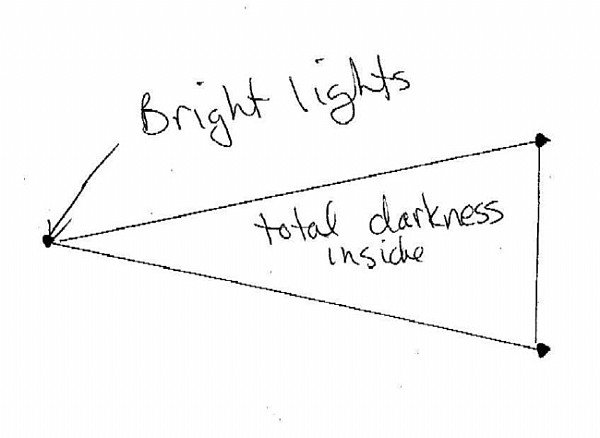 Bright lights
total darkness
inside